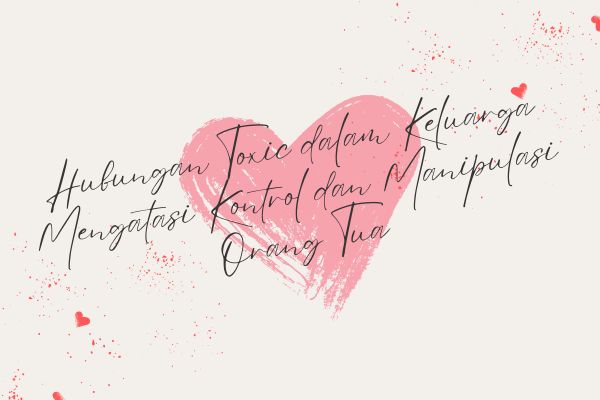 Hubungan Toxic dalam Keluarga
Mengatasi Kontrol dan Manipulasi
Orang Tua